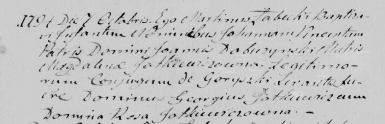 1794 Die 7 Octobris Ego Martinus Jabucki Baptisa
vi Infantem Nominibus Johannem Vincentum
Patris Domini Joannis Dabuzynski Matris
Magdalenæ Jatkiewiczowna Legitimo
rum Conjugum de Goryszki Levante fu
ere Dominus Georgius Jatkiewicz cum
Domina Rosa Jatkiewiczowna.